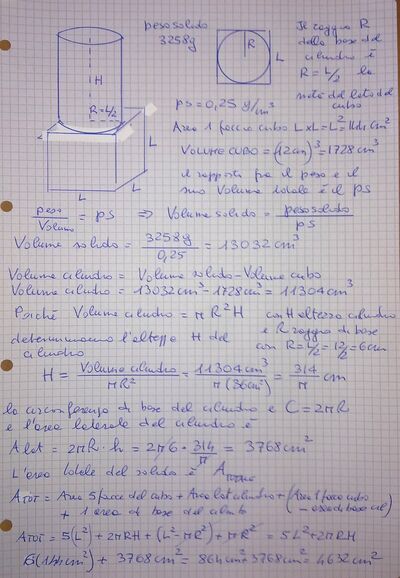 peso solido
3258g
H
R=L/2
L
L
L
R
L
Il raggio R
della base del
cilindro è
R = L/2 la
metà del lato del
cubo
ps = 0,25 g/cm³
Area 1 faccia cubo L×L = L² = 144 cm²
VOLUME CUBO = (12cm)³ = 1728 cm³
il rapporto fra il peso e il
suo Volume totale è il PS
peso/Volume = PS ⇒ Volume solido = peso solido/PS
Volume solido = 3258g/0,25 = 13032 cm³
Volume cilindro = Volume solido - Volume cubo
Volume cilindro = 13032 cm³ - 1728 cm³ = 11304 cm³
Poiché Volume cilindro = πR²H con H altezza cilindro
e R raggio di base
determiniamo l'altezza H del
cilindro
con R = L/2 = 12/2 = 6cm
H = Volume cilindro/πR² = 11304 cm³/π(36cm²) = 314/π cm
la circonferenza di base del cilindro è C = 2πR
e l'area laterale del cilindro è
A lat = 2πR · h = 2π6 · 314/π = 3768 cm²
L'area totale del solido è A
ATOT = Area 5 facce del cubo + Area lat cilindro + (Area 1 faccia cubo
- area di base cil)
+ 1 area di base del cilindro
ATOT = 5(L²) + 2πRH + (L² - πR²) + πR² = 5L² + 2πRH
6(144cm²) + 3768cm² = 864cm² + 3768cm² = 4632 cm²